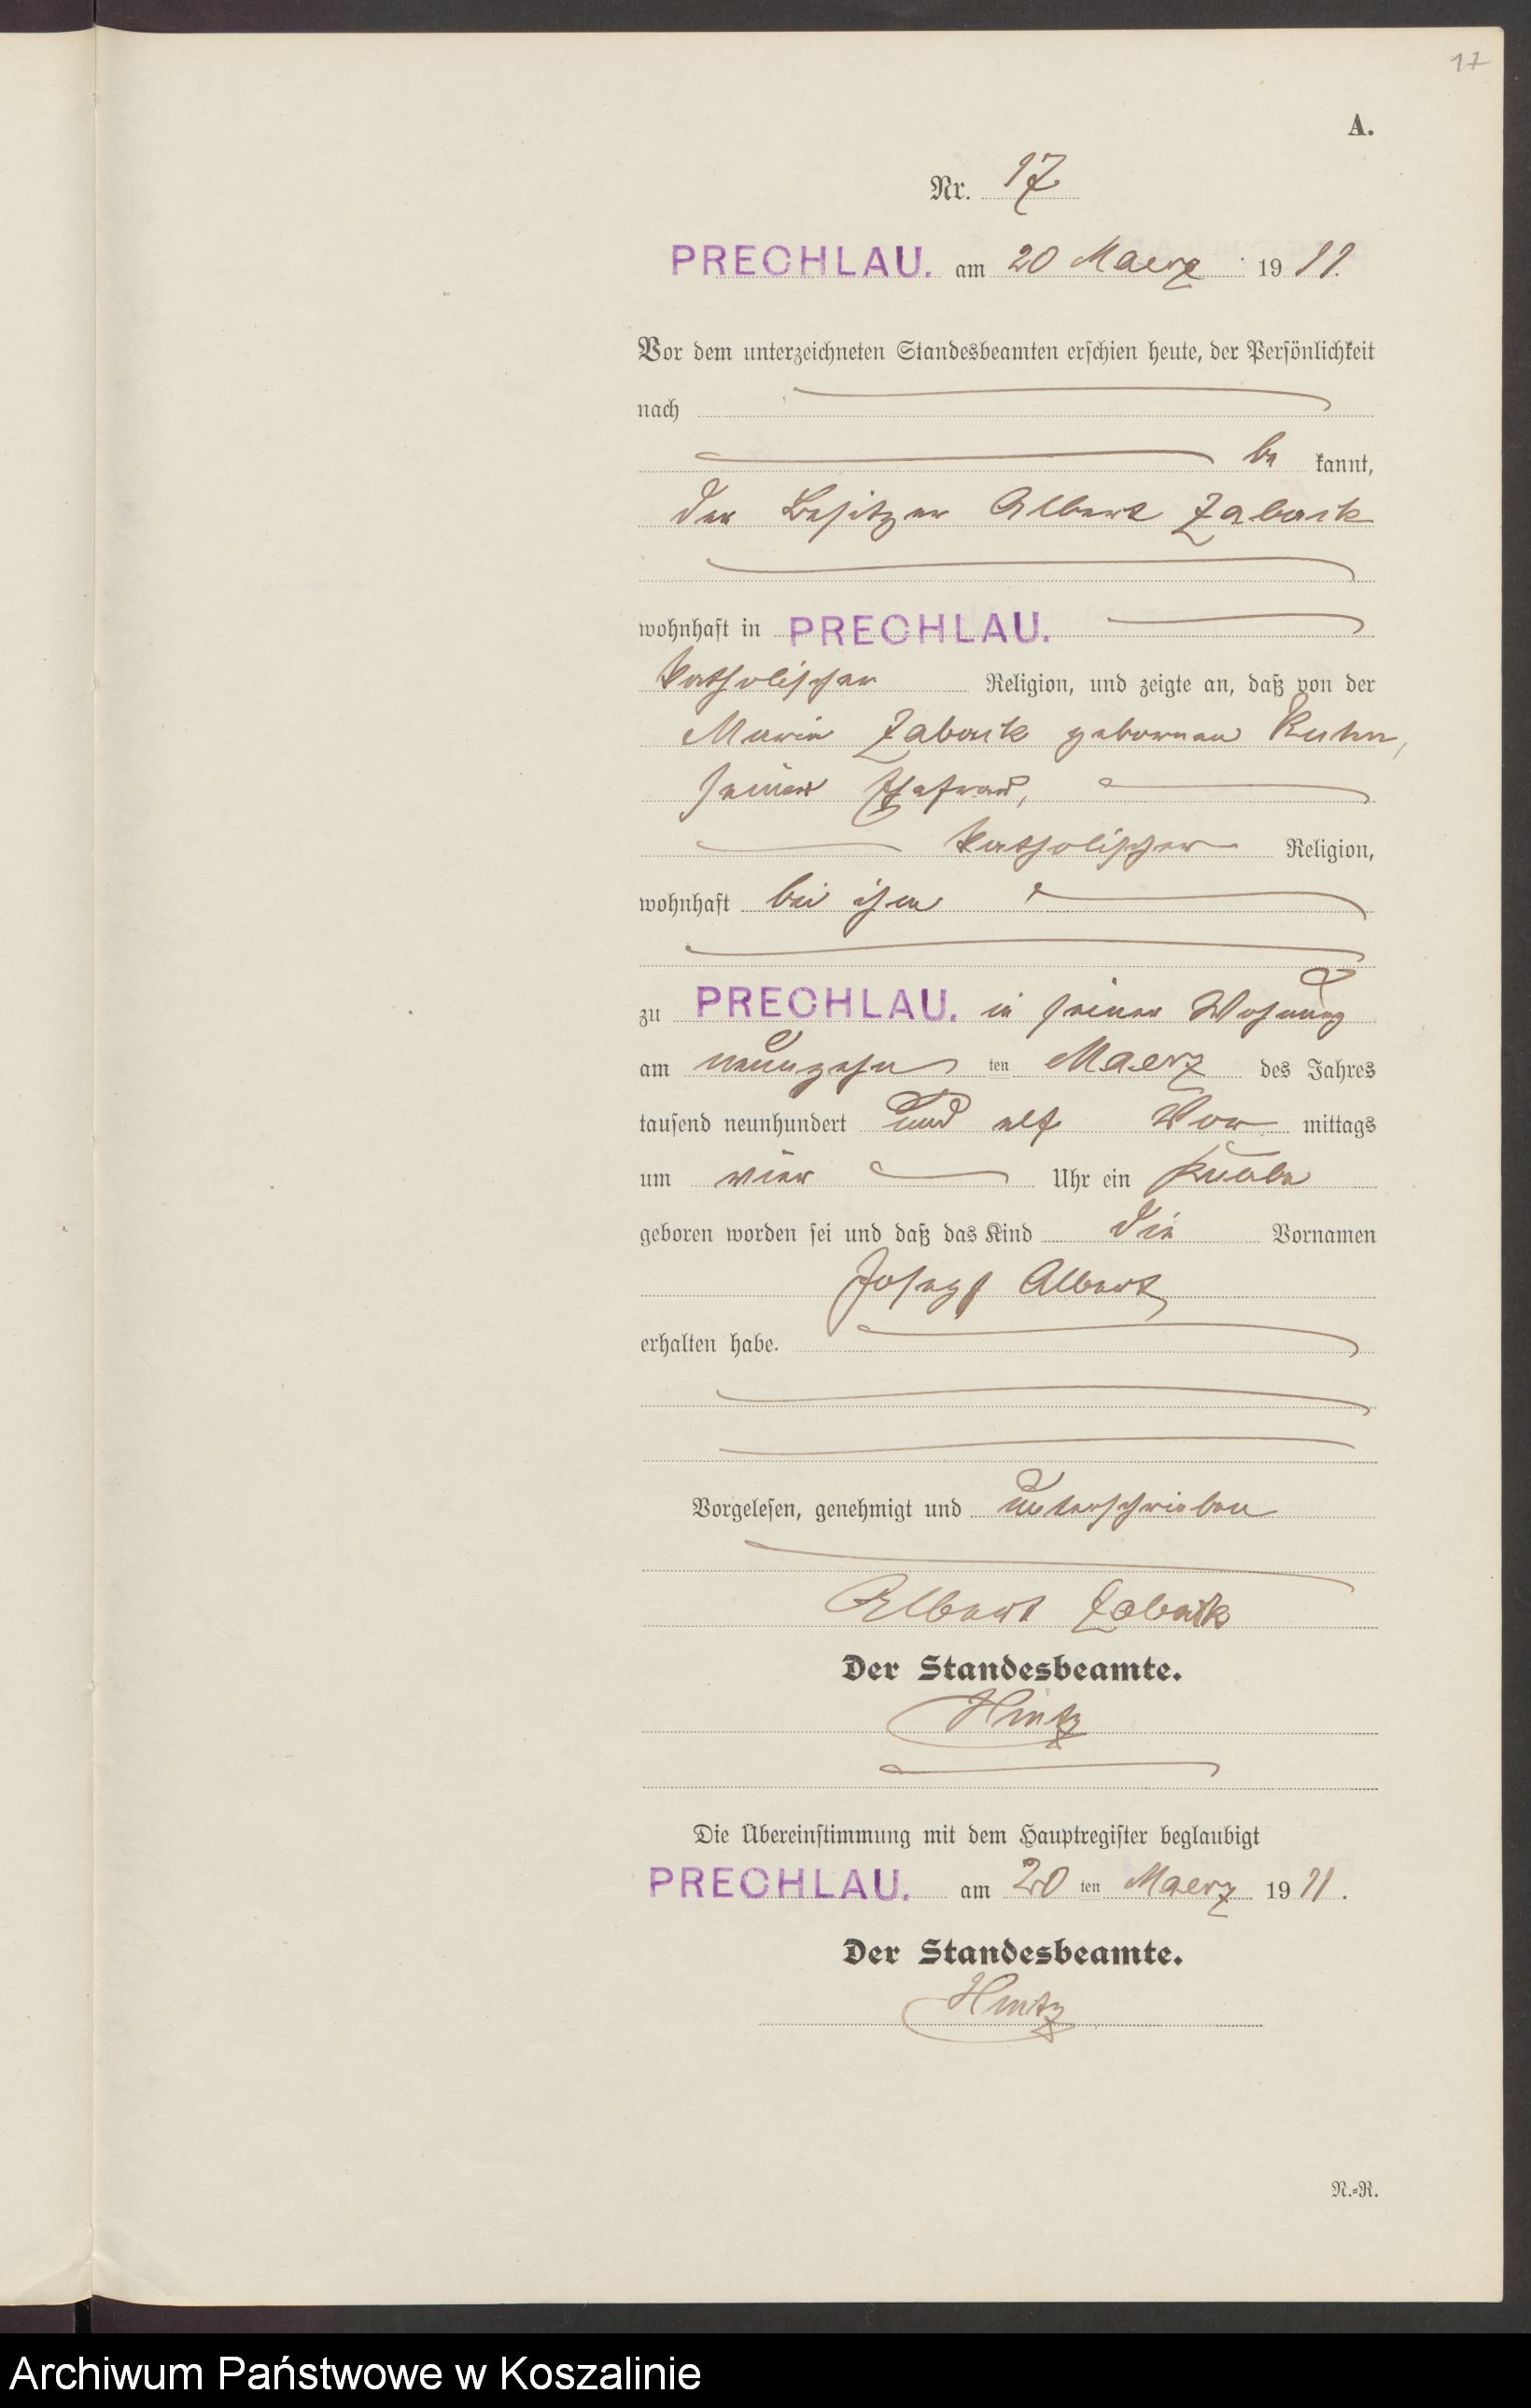 17
A.
Nr. 17
PRECHLAU. am 20 Maerz 1911.
Vor dem unterzeichneten Standesbeamten erschien heute, der Persönlichkeit
nach
be kannt,
der Besitzer Albert Zabork
wohnhaft in PRECHLAU.
katholischer Religion, und zeigte an, daß von der
Maria geborenen Kuhn,
seiner Ehefrau,
katholischer Religion,
wohnhaft bei ihm
zu PRECHLAU. in seiner Wohnung
am neunzehn ten Maerz des Jahres
tausend neunhundert und elf Vor mittags
um vier Uhr ein Knabe
geboren worden sei und daß das Kind die Vornamen
Joseph Albert
erhalten habe.
Vorgelesen, genehmigt und unterschrieben
Albert
Der Standesbeamte.
Hintz
Die Übereinstimmung mit dem Hauptregister beglaubigt
PRECHLAU. am 20 ten Maerz 1911.
Der Standesbeamte.
Hintz
N.=R.
Archiwum Państwowe w Koszalinie